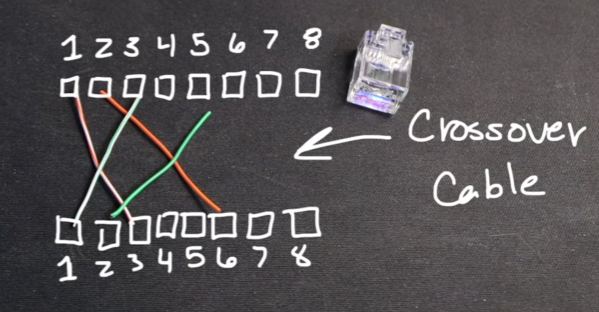 1 2 3 4 5 6 7 8
Crossover
Cable
1 2 3 4 5 6 7 8